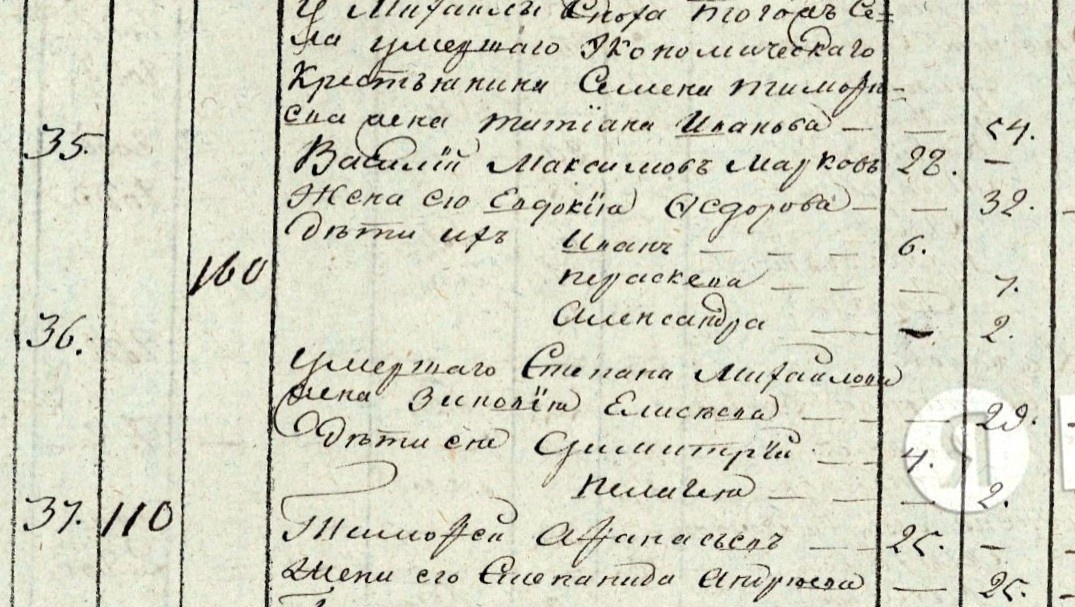 У Михаилы Снова тогожъ Се=
ла умершаго Экономическаго
Крестьянина Семена Тимофѣ=
ева жена Татіана Иванова — — 54.
35. Василій Максимовъ Марковъ 28. —
Жена его Евдокія Ѳедорова — — 32.
дѣти ихъ Иванъ — — — 6.
160 Параскева — — — 7.
36. Александра — — 2.
умершаго Степана Михаилова
жена Зиновія Елисѣева — — 29.
дѣти ея Димитрій — — 4.
Пелагея — — — 2.
37. 110 Тимофей Афанасьевъ — — 25. —
Жена его Степанида Андреева — 25.